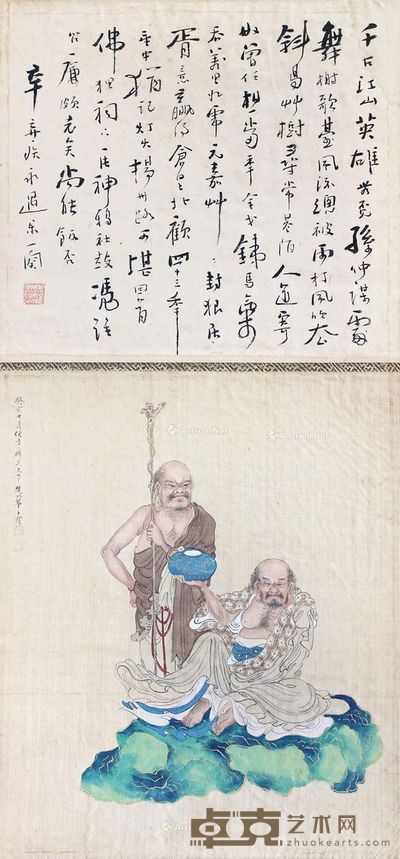 千古江山英雄無覓孫仲謀處
舞榭歌臺風流總被雨打風吹去
斜陽艸樹尋常巷陌人道寄
奴曾住想當年金戈鐵馬氣
吞萬里如虎元嘉艸艸封狼居
胥意贏得倉皇北顧四十三年
望中猶記灯火揚州路可堪回首
佛狸祠下一片神鴉社鼓憑誰
問廉頗老矣尚能飯否
辛棄疾永遇樂一闋
癸亥七月
卓克艺术网
www.zhuokearts.com